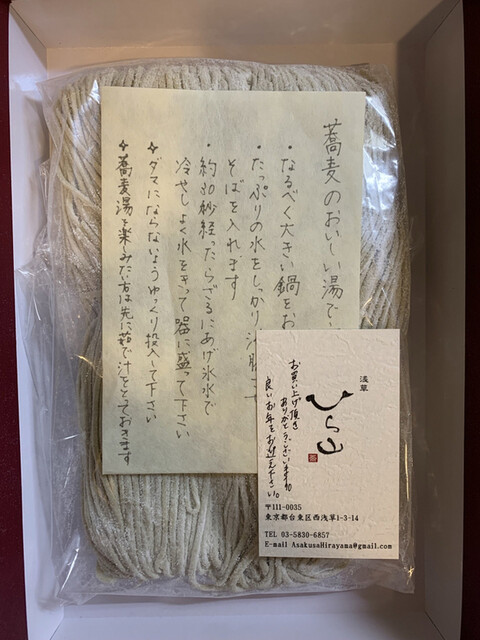 蕎麦のおいしい湯で
・なるべく大きい鍋をお
・たっぷりの水をしっかり沸騰
そばを入れます
・約30秒経ったらざるにあげ氷水で
冷やしよく水をきって器に盛って下さい
✧ダマにならないようゆっくり投入して下さい
✧蕎麦湯を楽しみたい方は先に茹で汁をとっておきます
浅草
ひら山
お買い上げ頂き
ありがとうございます
良いお年をお迎え下さい。
〒111-0035
東京都台東区西浅草1-3-14
TEL 03-5830-6857
E-mail AsakusaHirayama@gmail.com